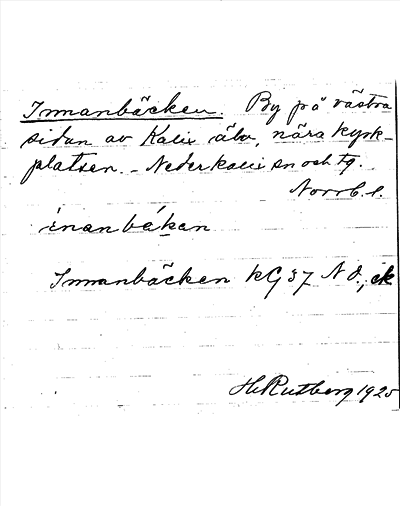 Innanbäcken. By på västra
sidan av Kalix älv, nära kyrk-
platsen. - Nederkalix sn och tg.
Norrb. l.
inanbékan
Innanbäcken kG 37 N d., ek
H. Rutberg 1925